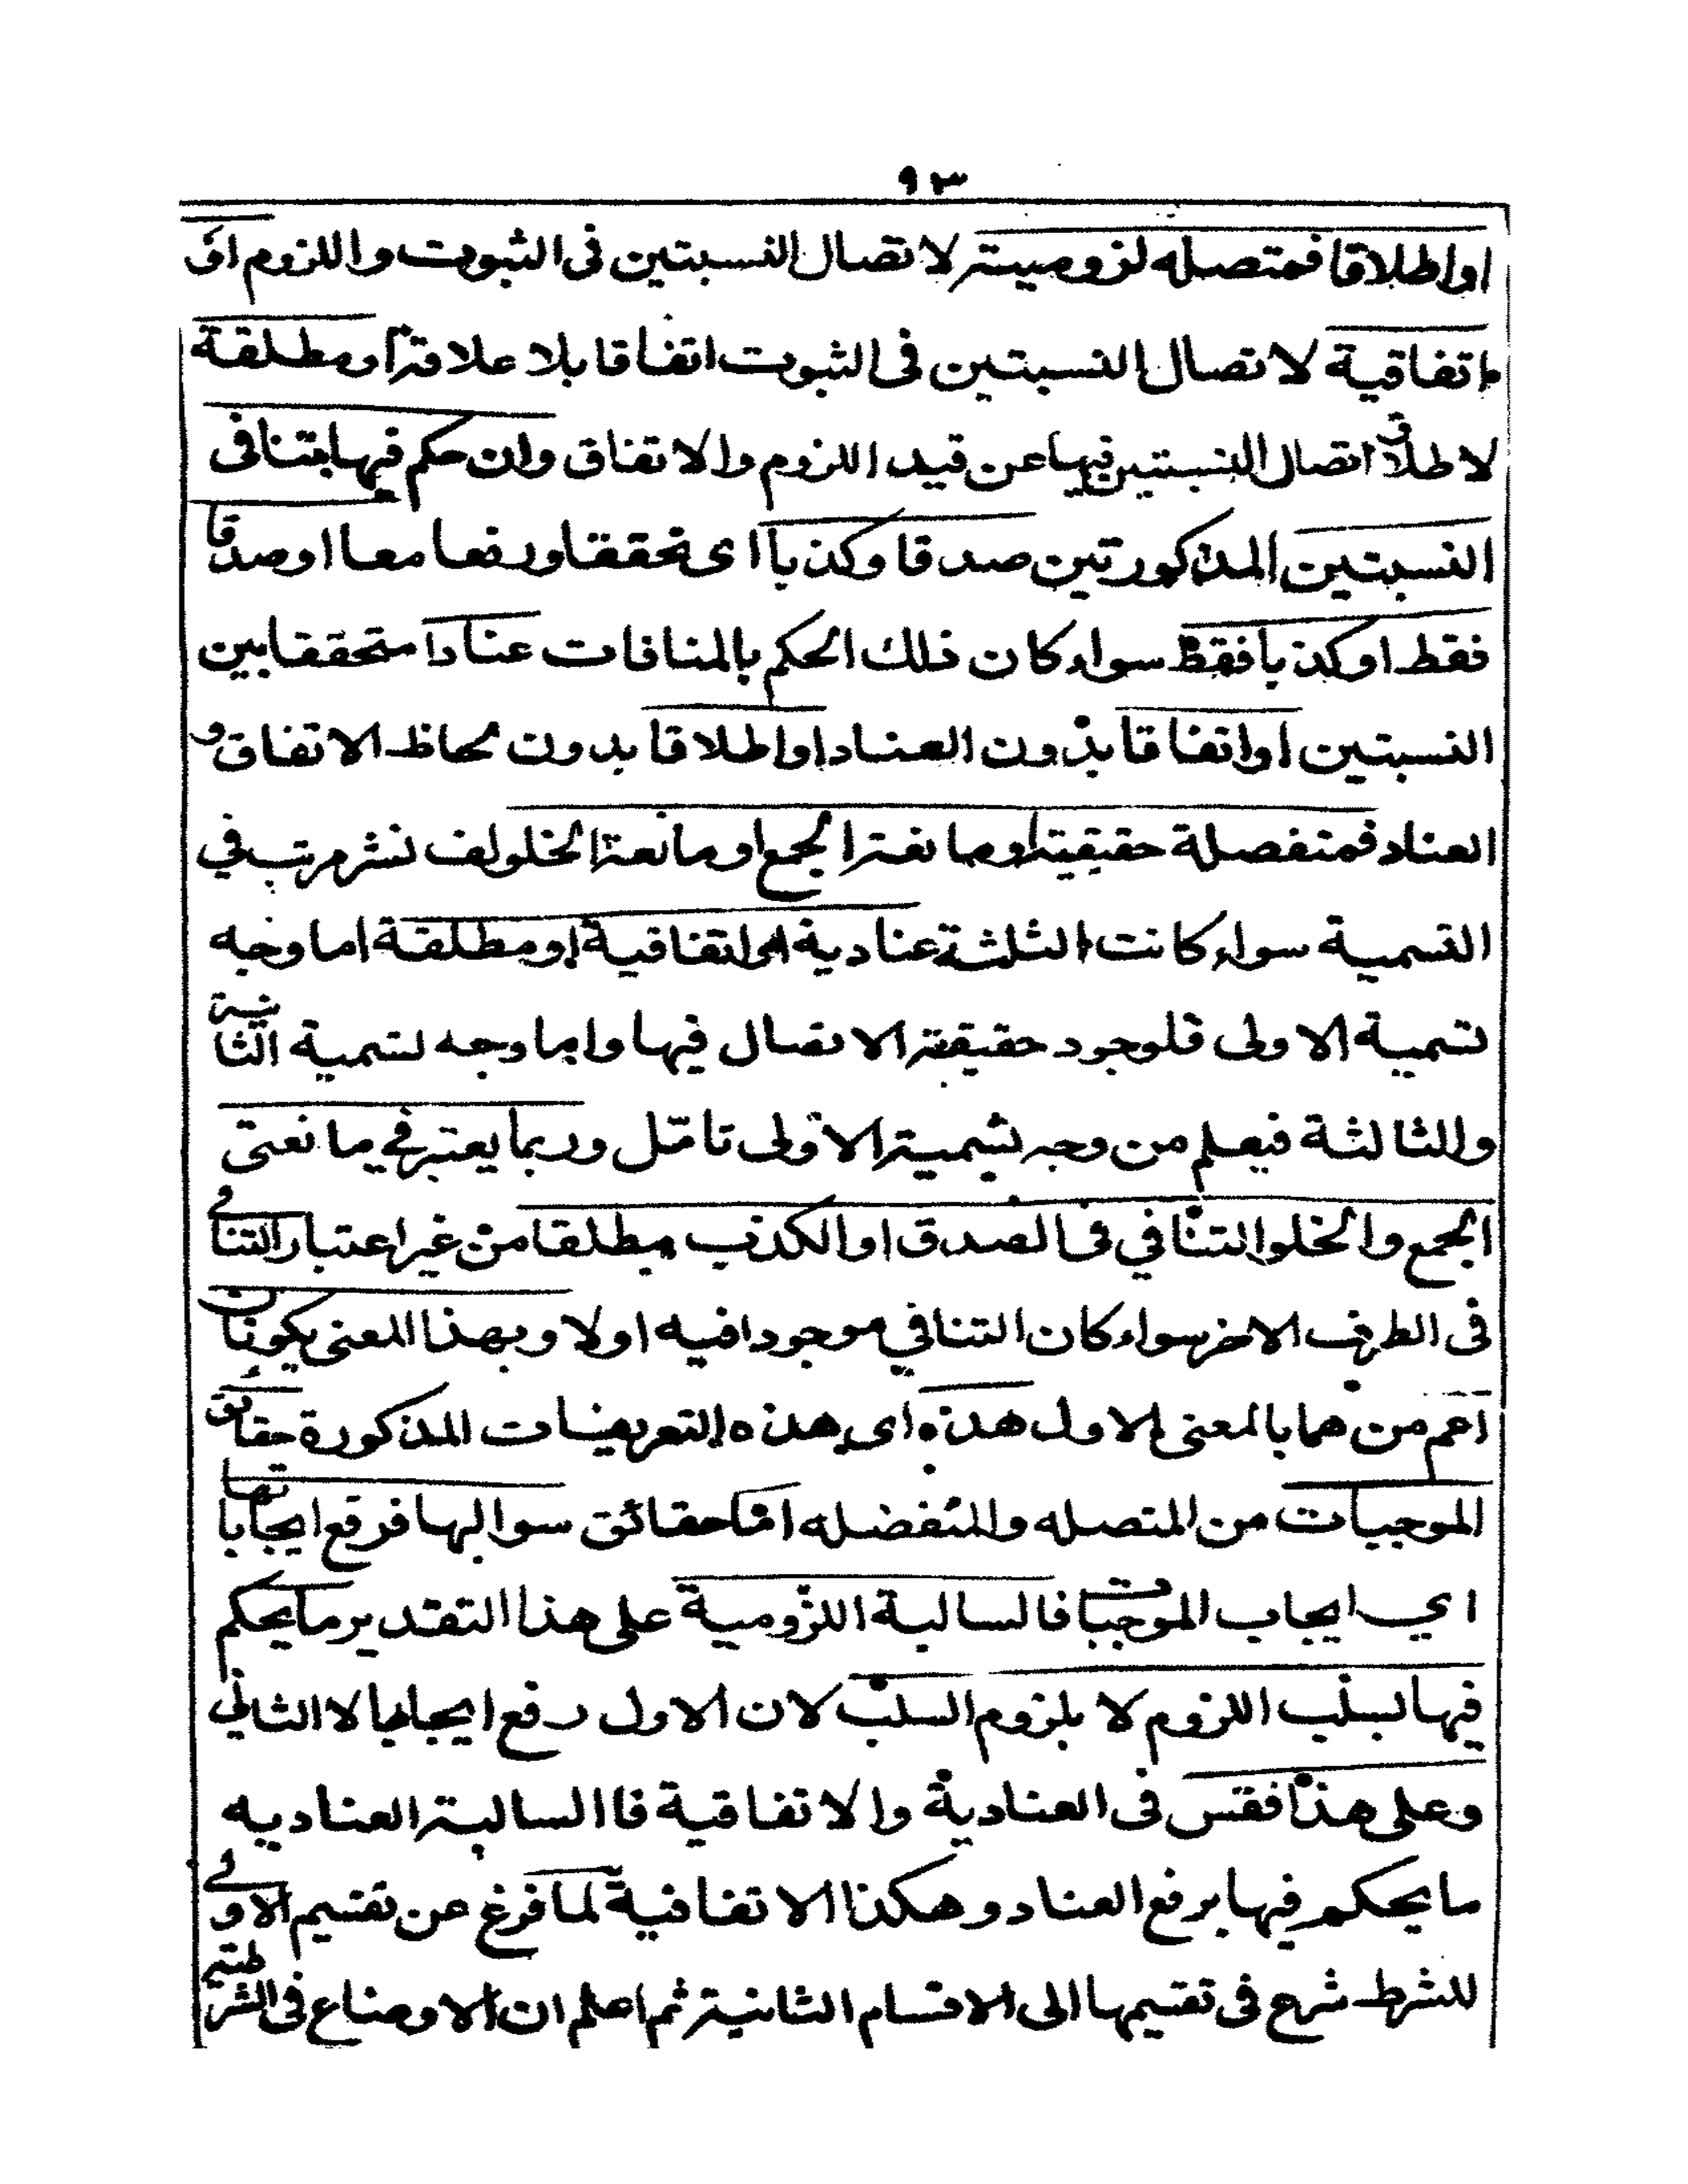 ٩٣
او اطلاقا فمتصله لزومية لاتصال النسبتين فى الثبوت واللزوم او
اتفاقية لاتصال النسبتين فى الثبوت اتفاقا بلا علاقة او مطلقة
لاطلاق اتصال النسبتين فيها عن قيد اللزوم والاتفاق وان حكم فيها بتنافى
النسبتين المذكورتين صدقا وكذبا اى تحققا ورفعا معا او صدقا
فقط او كذبا فقط سواء كان ذلك الحكم بالمنافات عنادا متحققا بين
النسبتين او اتفاقا بدون العناد او اطلاقا بدون لحاظ الاتفاق و
العناد فمنفصلة حقيقية او مانعة الجمع او مانعة الخلو لف نشر مرتب في
التسمية سواء كانت الثلثة عنادية او اتفاقية او مطلقة اما وجه
تسمية الاولى فلوجود حقيقة الانفصال فيها واما وجه تسمية الثانية
والثالثة فيعلم من وجه تسمية الاولى تامل وربما يعتبر في مانعتى
الجمع والخلو التنافي فى الصدق او الكذب مطلقا من غير اعتبار التنافى
فى الطرف الاخر سواء كان التنافي موجودا فيه اولا وبهذا المعنى يكونان
اعم من هما بالمعنى الاول هذه اى هذه التعريفات المذكورة حقائق
الموجبات من المتصله والمنفصله اما حقائق سوالبها فرفع ايجاباتها
اي ايجاب الموجبات فالسالبة اللزومية على هذا التقدير ما يحكم
فيها بسلب اللزوم لا بلزوم السلب لان الاول رفع ايجابها لا الثاني
وعلى هذا فقس فى العنادية والاتفاقية فاالسالبة العناديه
ما يحكم فيها برفع العناد وهكذا الاتفاقية لما فرغ عن تقسيم الاولى
للشرط شرع فى تقسيمها الى الاقسام الثانية ثم اعلم ان الاوضاع فى الشرطية